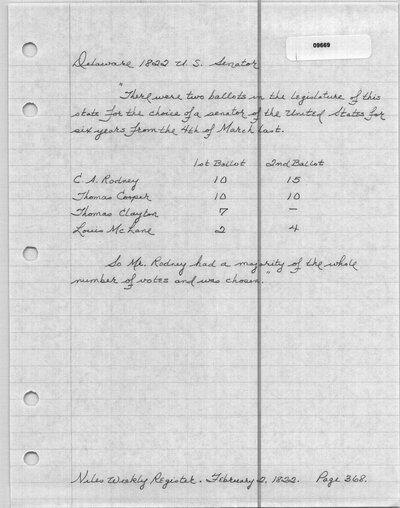 09669
Delaware 1822 U. S. Senator
"There were two ballots in the legislature of this
state for the choice of a senator of the United States for
six years from the 4th of March last.
1st Ballot 2nd Ballot
C. A. Rodney 10 15
Thomas Cooper 10 10
Thomas Clayton 7 —
Louis McLane 2 4
So Mr. Rodney had a majority of the whole
number of votes and was chosen."
Niles Weekly Register. February 2, 1822. Page 368.